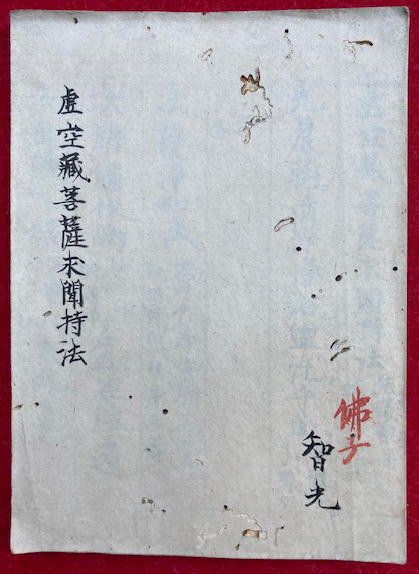 虚空藏菩薩求聞持法
佛子
智光